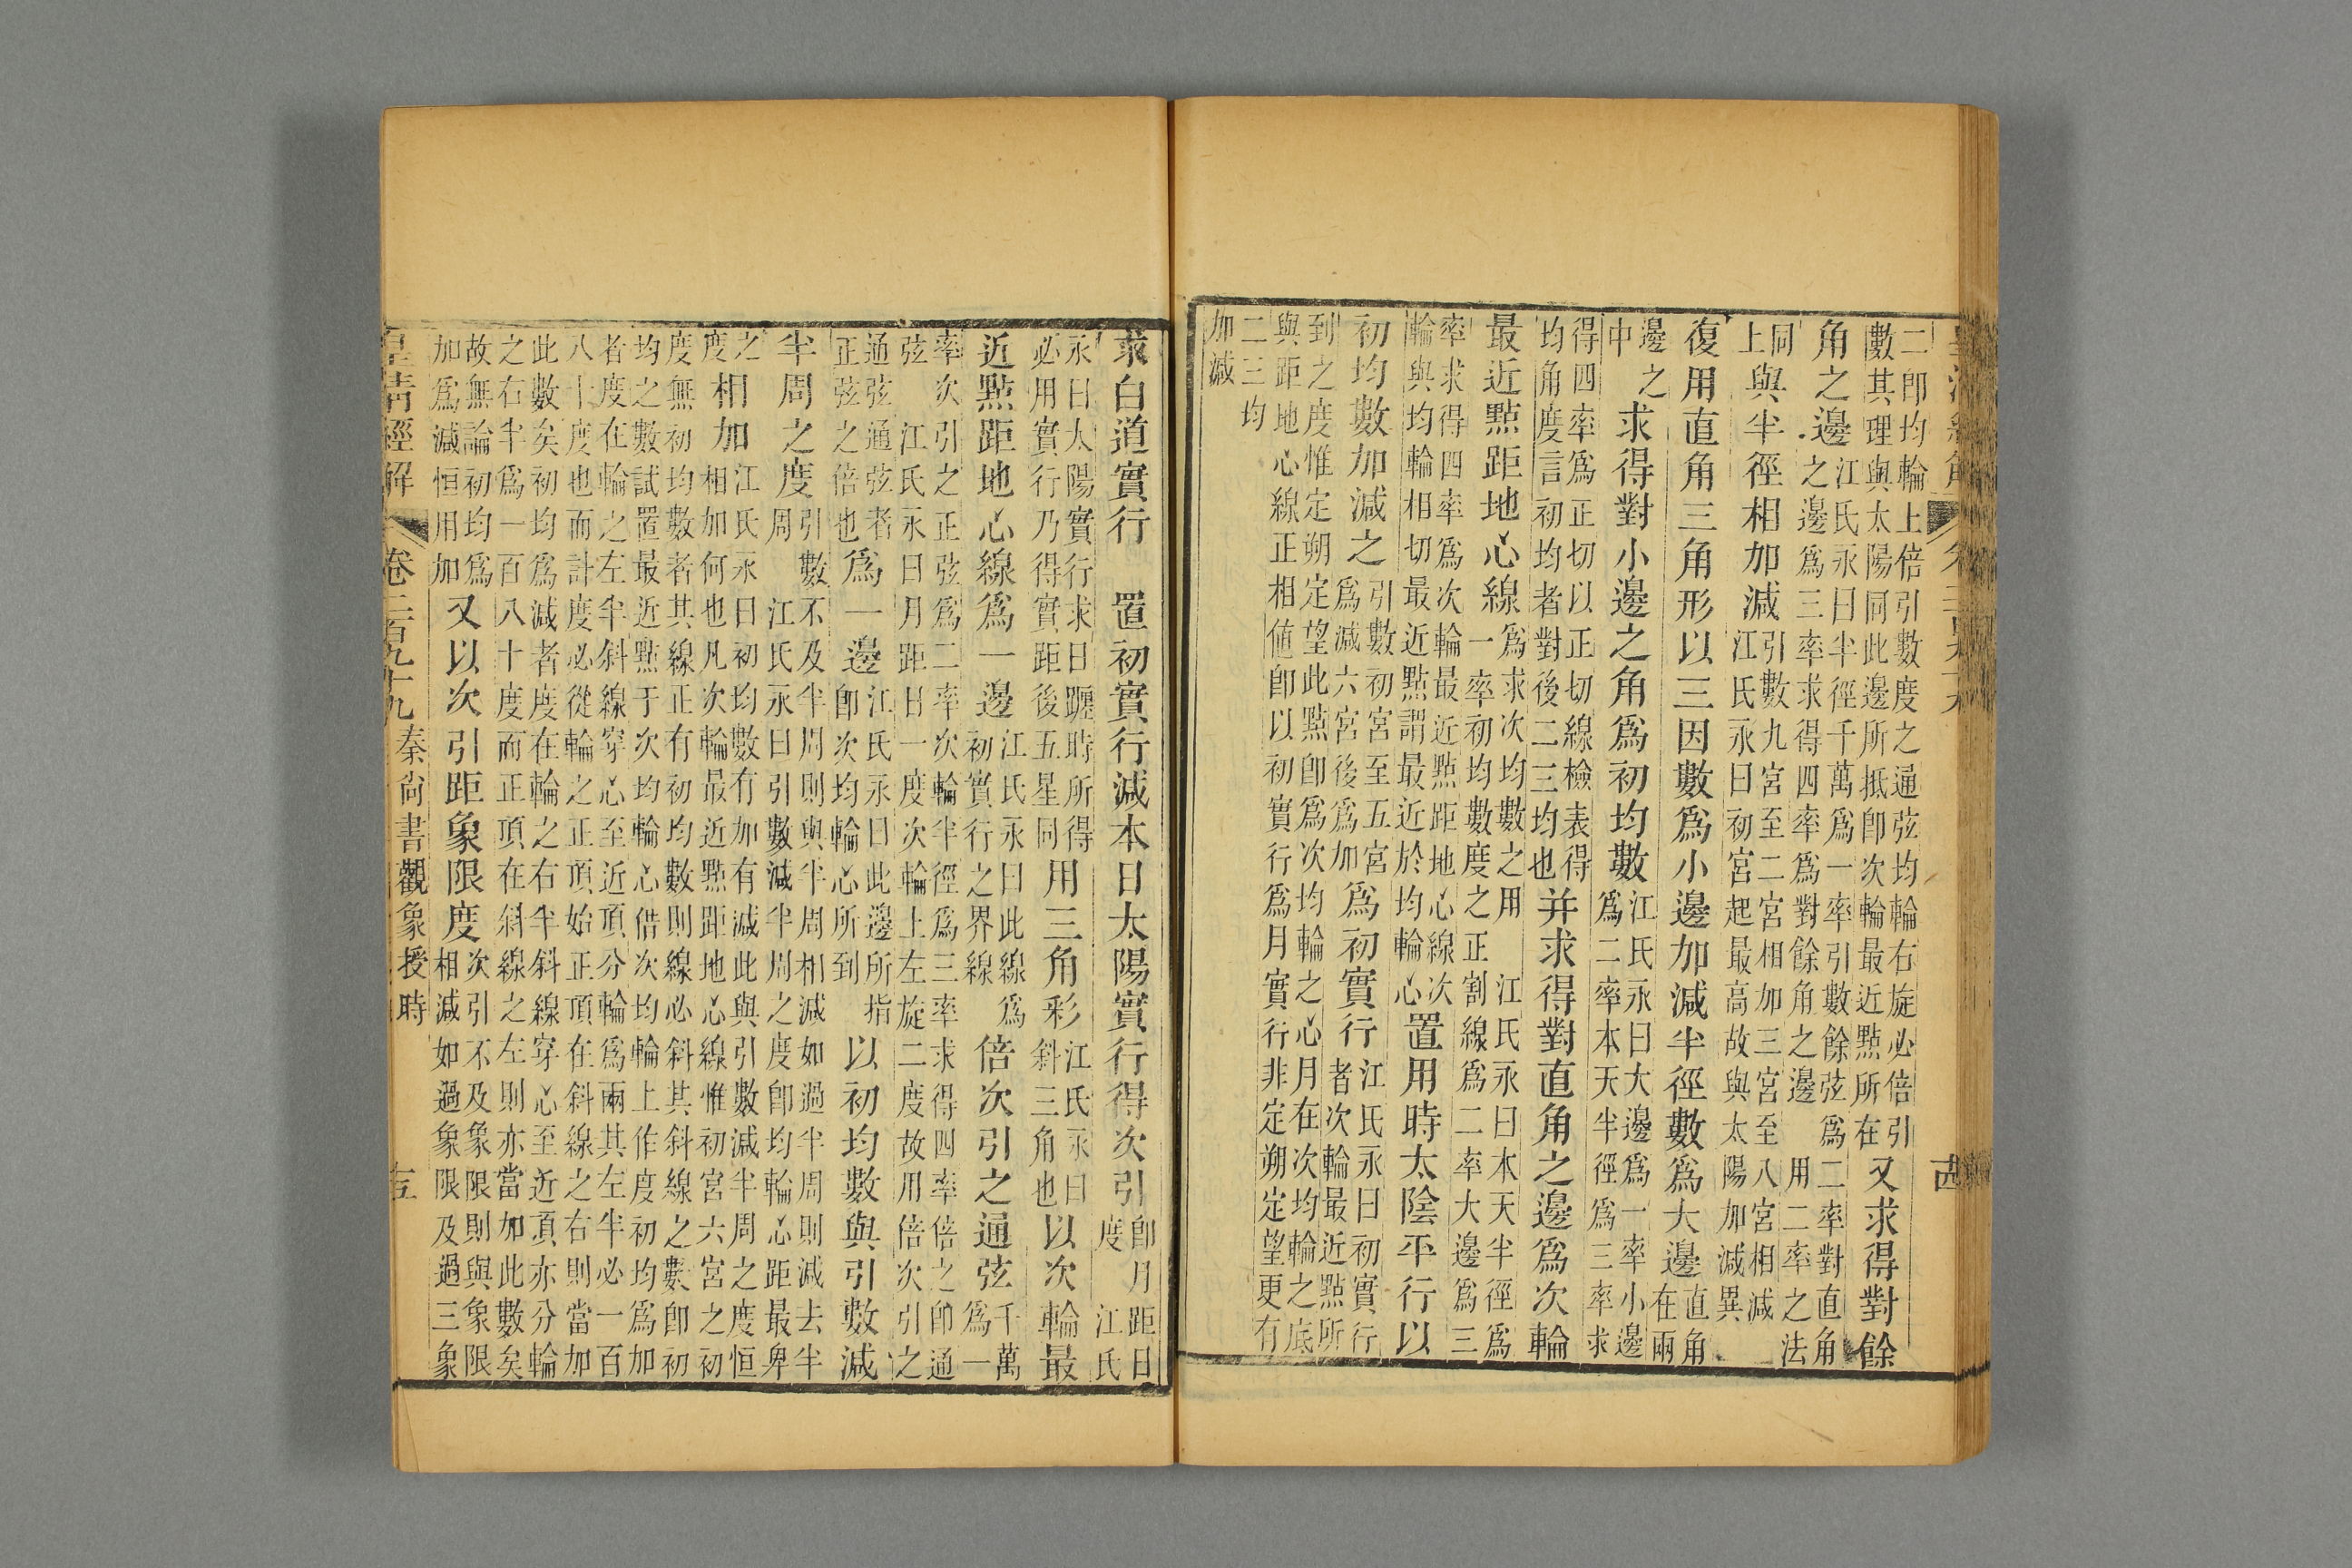 二卽均輪上倍引數度之通弦均輪右旋必倍引
數其理與太陽同此邊所抵卽次輪最近點所在
又求得對餘
角之邊
江氏永曰半徑千萬爲一率引數餘弦爲二率對直角
之邊爲三率求得四率爲對餘角之邊 用二率之法
同
上
與半徑相加減
引數九宮至二宮相加三宮至八宮相減
江氏永曰初宮起最高故與太陽加減異
復用直角三角形以三因數爲小邊加減半徑數爲大邊
直角
在兩
邊之
中
求得對小邊之角爲初均數
江氏永曰大邊爲一率小邊
爲二率本天半徑爲三率求
得四率爲正切以正切線檢表得
均角度言初均者對後二三均也
并求得對直角之邊爲次輪
最近點距地心線
爲求次均數之用 江氏永曰本天半徑爲
一率初均數度之正割線爲二率大邊爲三
率求得四率爲次輪最近點距地心線次
輪與均輪相切最近點謂最近於均輪心
置用時太陰平行以
初均數加減之
引數初宮至五宮
爲減六宮後爲加
爲初實行
江氏永曰初實行
者次輪最近點所
到之度惟定朔定望此點卽爲次均輪之心月在次均輪之底
與距地心線正相値卽以初實行爲月實行非定朔定望更有
二三均
加減
求白道實行 置初實行減本日太陽實行得次引
卽月距日
度 江氏
永曰太陽實行求日躔時所得
必用實行乃得實距後五星同
用三角形
江氏永曰
斜三角也
以次輪最
近點距地心線爲一邊
江氏永曰此線爲
初實行之界線
倍次引之通弦
千萬
爲一
率次引之正弦爲二率次輪半徑爲三率求得四率倍之卽通
弦 江氏永曰月距日一度次輪上左旋二度故用倍次引之
通弦通弦者
正弦之倍也
爲一邊
江氏永曰此邊所指
卽次均輪心所到
以初均數與引數減
半周之度
引數不及半周則與半周相減如過半周則減去半
周 江氏永曰引數減半周之度卽均輪心距最卑
之
度
相加
江氏永曰初均數有加有減此與引數減半周之度恒
相加何也凡次輪最近點距地心線惟初宮六宮之初
度無初均數者其線正有初均數則線必斜其斜線之數卽初
均之數試置最近點于次均輪心借次均輪上作度初均爲加
者度在輪之左半斜線穿心至近頂分輪爲兩其左半必一百
八十度也而計度必從輪之正頂始正頂在斜線之右則當加
此數矣初均爲減者度在輪之右半斜線穿心至近頂亦分輪
之右半爲一百八十度而正頂在斜線之左則亦當加此數矣
故無論初均爲
加爲減恒用加
又以次引距象限度
次引不及象限則與象限
相減如過象限及過三象
皇清經解
卷三百九十九
秦尙書觀象授時